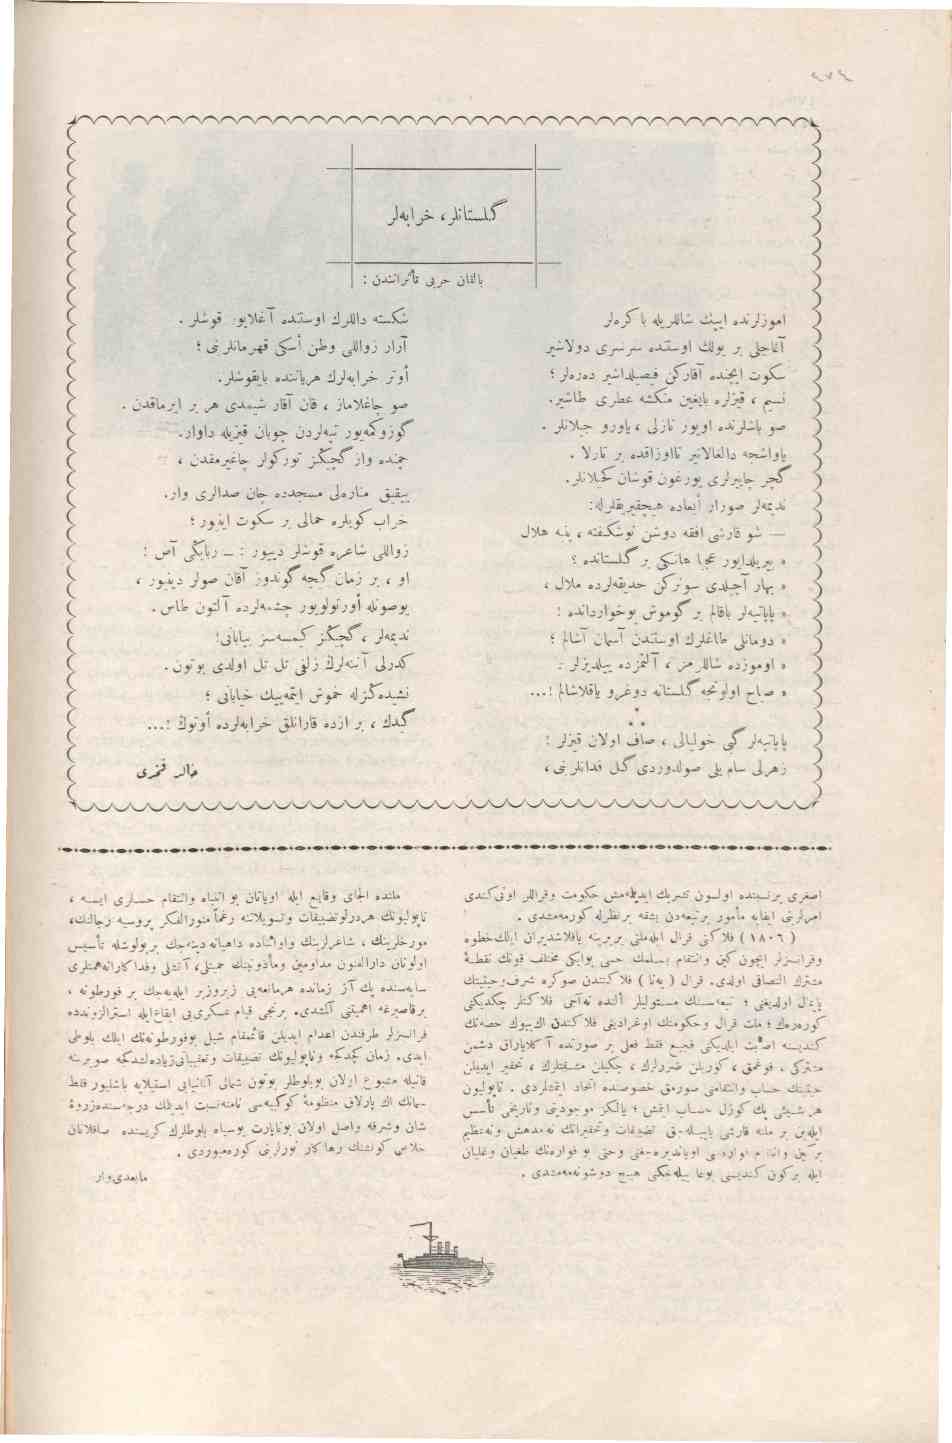 ٤٧٣
گلستانلر، خرابه‌لر
بالقان حربی تأثراتندن :
اموزلرنده ایپك شاللریله باكره‌لر
آغاجلی بر یولك اوستنده سرسری دولاشیر
سكوت ایچنده آقاركن فیصیلداشیر دره‌لر ؛
نسیم ، قیزلره بایغین منكشه عطری طاشیر.
صو باشلرنده اویور نازلی ، یاورو جیلانلر .
یاواشجه دالغالانیر تااوزاقده بر تارلا .
گچر چایرلری یورغون قوشان
ندیمه‌لر صورار أبعاده هیچقیریقلرله:
— شو قارشی افقه دوشن نوشكفته ، پنبه هلال
» پیریلدایور عجبا هانكی بر گلستانده ؟
» بهار آچیلدی سونركن حدیقه‌لرده ملال ،
» پاپاتیه‌لر باقالم بر گوموش بوخوارداندە !
» دومانلی طاغلرك اوستندن آسمان آشالم ؛
» اوموزده شاللرمز ، آلنمزده ییلدیزلر .
» صباح اولونجه گلستانه دوغرو یاقلاشالم !...
* * *
پاپاتیه‌لر گبی خولیالی ، صاف اولان قیزلر !
زهرلی سام یلی صولدوردی گل فدانلرنی ،
شكسته داللرك اوستنده آغلایور قوشلر .
آرار زواللی وطن أسكی قهرمانلرنی ؛
أوتر خرابه‌لرك هریاننده بایقوشلر.
صو چاغلاماز ، قان آقار شیمدی هر بر ایرماقدن .
گوزوكمه‌یور تپه‌لردن چوبان قیزیله داوار.
چمنده واز گچیكز توركولر چاغیرمقدن ،
ییقیق مناره‌لی مسجدده چان صدالری وار.
خراب كویلره حمالی بر سكوت اینیور ؛
زواللی شاعره قوشلر دییور : ـ ربابكی آص !
او ، بر زمان گیجه گوندوز آقان صولر دینیور ،
یوصونله أورتولویور چشمه‌لرده آلتون طاس .
ندیمه‌لر ، گچیكز كیمسه‌سز بیابانی!
كدرلی آننه‌لرك زلفی تل تل اولدی بوتون .
نشیده‌كزله خموش ایتمه‌ییك خیابانی ؛
گیدك ، بر ازده قارانلق خرابه‌لرده أوتوك !...
خالد فخری
اصغری برنسبتده اولسون تشریك ایدیلمه‌مش حكومت وقراللر اونی كندی
امرلرینی ایفایه مأمور برتبعه‌دن بشقه برنظرله كورمه‌مشدی .
( ١٨٠٦ ) فلاكتی قرال ایله‌ملتی بربرینه یاقلاشدیران ایلك خطوه
وفرانسزلر ایچون كین وانتقام بسلمك حسی بوایكی مختلف قوتك نقطهٔ
مشترك التصاقی اولدی. قرال ( یه‌نا ) فلاكتندن صوكره شرف‌وحیثیتك
پایمال اولدیغنی ؛ تبعه‌سنك مستولیلر ألنده نه‌آجی فلاكتلر چكدیكنی
كوره‌رك ؛ ملت قرال وحكومتك اوغرادیغی فلاكتدن اك بیوك حصه‌نك
كندیسنه اصابت ایلدیكنی فجیع فقط فعلی بر صورتده آكلایاراق دشمن
مشتركی . قوغمق ، كوریلن ضررلرك ، چكیلن مشقتلرك ، تحقیر ایدیلن
حیثیتك حساب وانتقامنی صورمق خصوصنده اتحاد ایتمشلردی . ناپولیون
هر شیئی پك كوزل حساب ایتمش ؛ یالكز موجودیتی وتاریخی تأسس
ایله‌ین بر ملته قارشی یاپیله‌جق تضییقات وتحقیراتك نه‌مدهش ونه‌عظیم
بركین وانتقام اواره‌سی اویاندیره‌جغنی وحتی بو فوارە‌نك طغیان وغلیان
ایله بركون كندیسنی بوغا بیله‌جكنی هیچ دوشونه‌مه‌مشدی .
ملتده الجای وقایع ایله اویانان بو انتباه وانتقام حسلری ایسه ،
ناپولیونك هردرلوتضییقات وتسویلاتنه رغماً منورالفكر پروسیه رجالنك،
مورخلرینك ، شاعرلرینك واواثناده داهیانه‌دینه‌جك بریولسله تأسیس
اولونان دارالفنون مداومین ومأذونینك حمیتلی، آتشلی وفداكارانه‌همتلری
سایه‌سنده پك آز زمانده هرمانعه‌یی زیروزبر ایله‌یه‌جك بر فورطونه ،
برقاصیرغه اهمیتنی آلشدی. برنجی قیام عسكری‌یی ایقاع‌ایله استرالزوندده
فرانسزلر طرفندن اعدام ایدیلن قائمقام شیل بوفورطونه‌نك ایلك بلوطی
ایدی. زمان كچدكجه وناپولیونك تضییقات وتعقیباتی‌زیاده‌لشدكجه صوبرینه
قانیله مشبوع اولان بوبلوطلر بوتون شمالی آلمانیایی استیلایه باشلیور فقط
سمانك اك پارلاق منظومهٔ كوكبیه‌سی نامنه‌نسبت ایدیلك درجه‌سنده‌ذروهٔ
شان وشرفه واصل اولان بوناپارت بوسیاه بلوطلرك كریسنده صاقلانان
خلاص كونشنك رهاكار نورلرینی كوره‌میوردی .
مابعدی‌وار